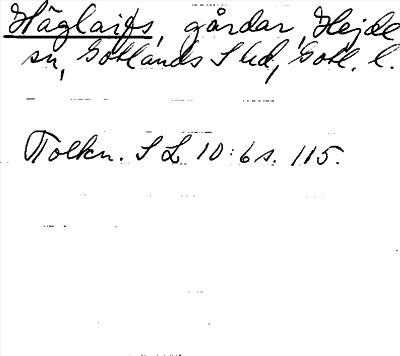 Häglaifs, gårdar, Hejde
sn, Gotlands S hd, Gotl. l.
Tolkn. S L 10:6 s. 115.